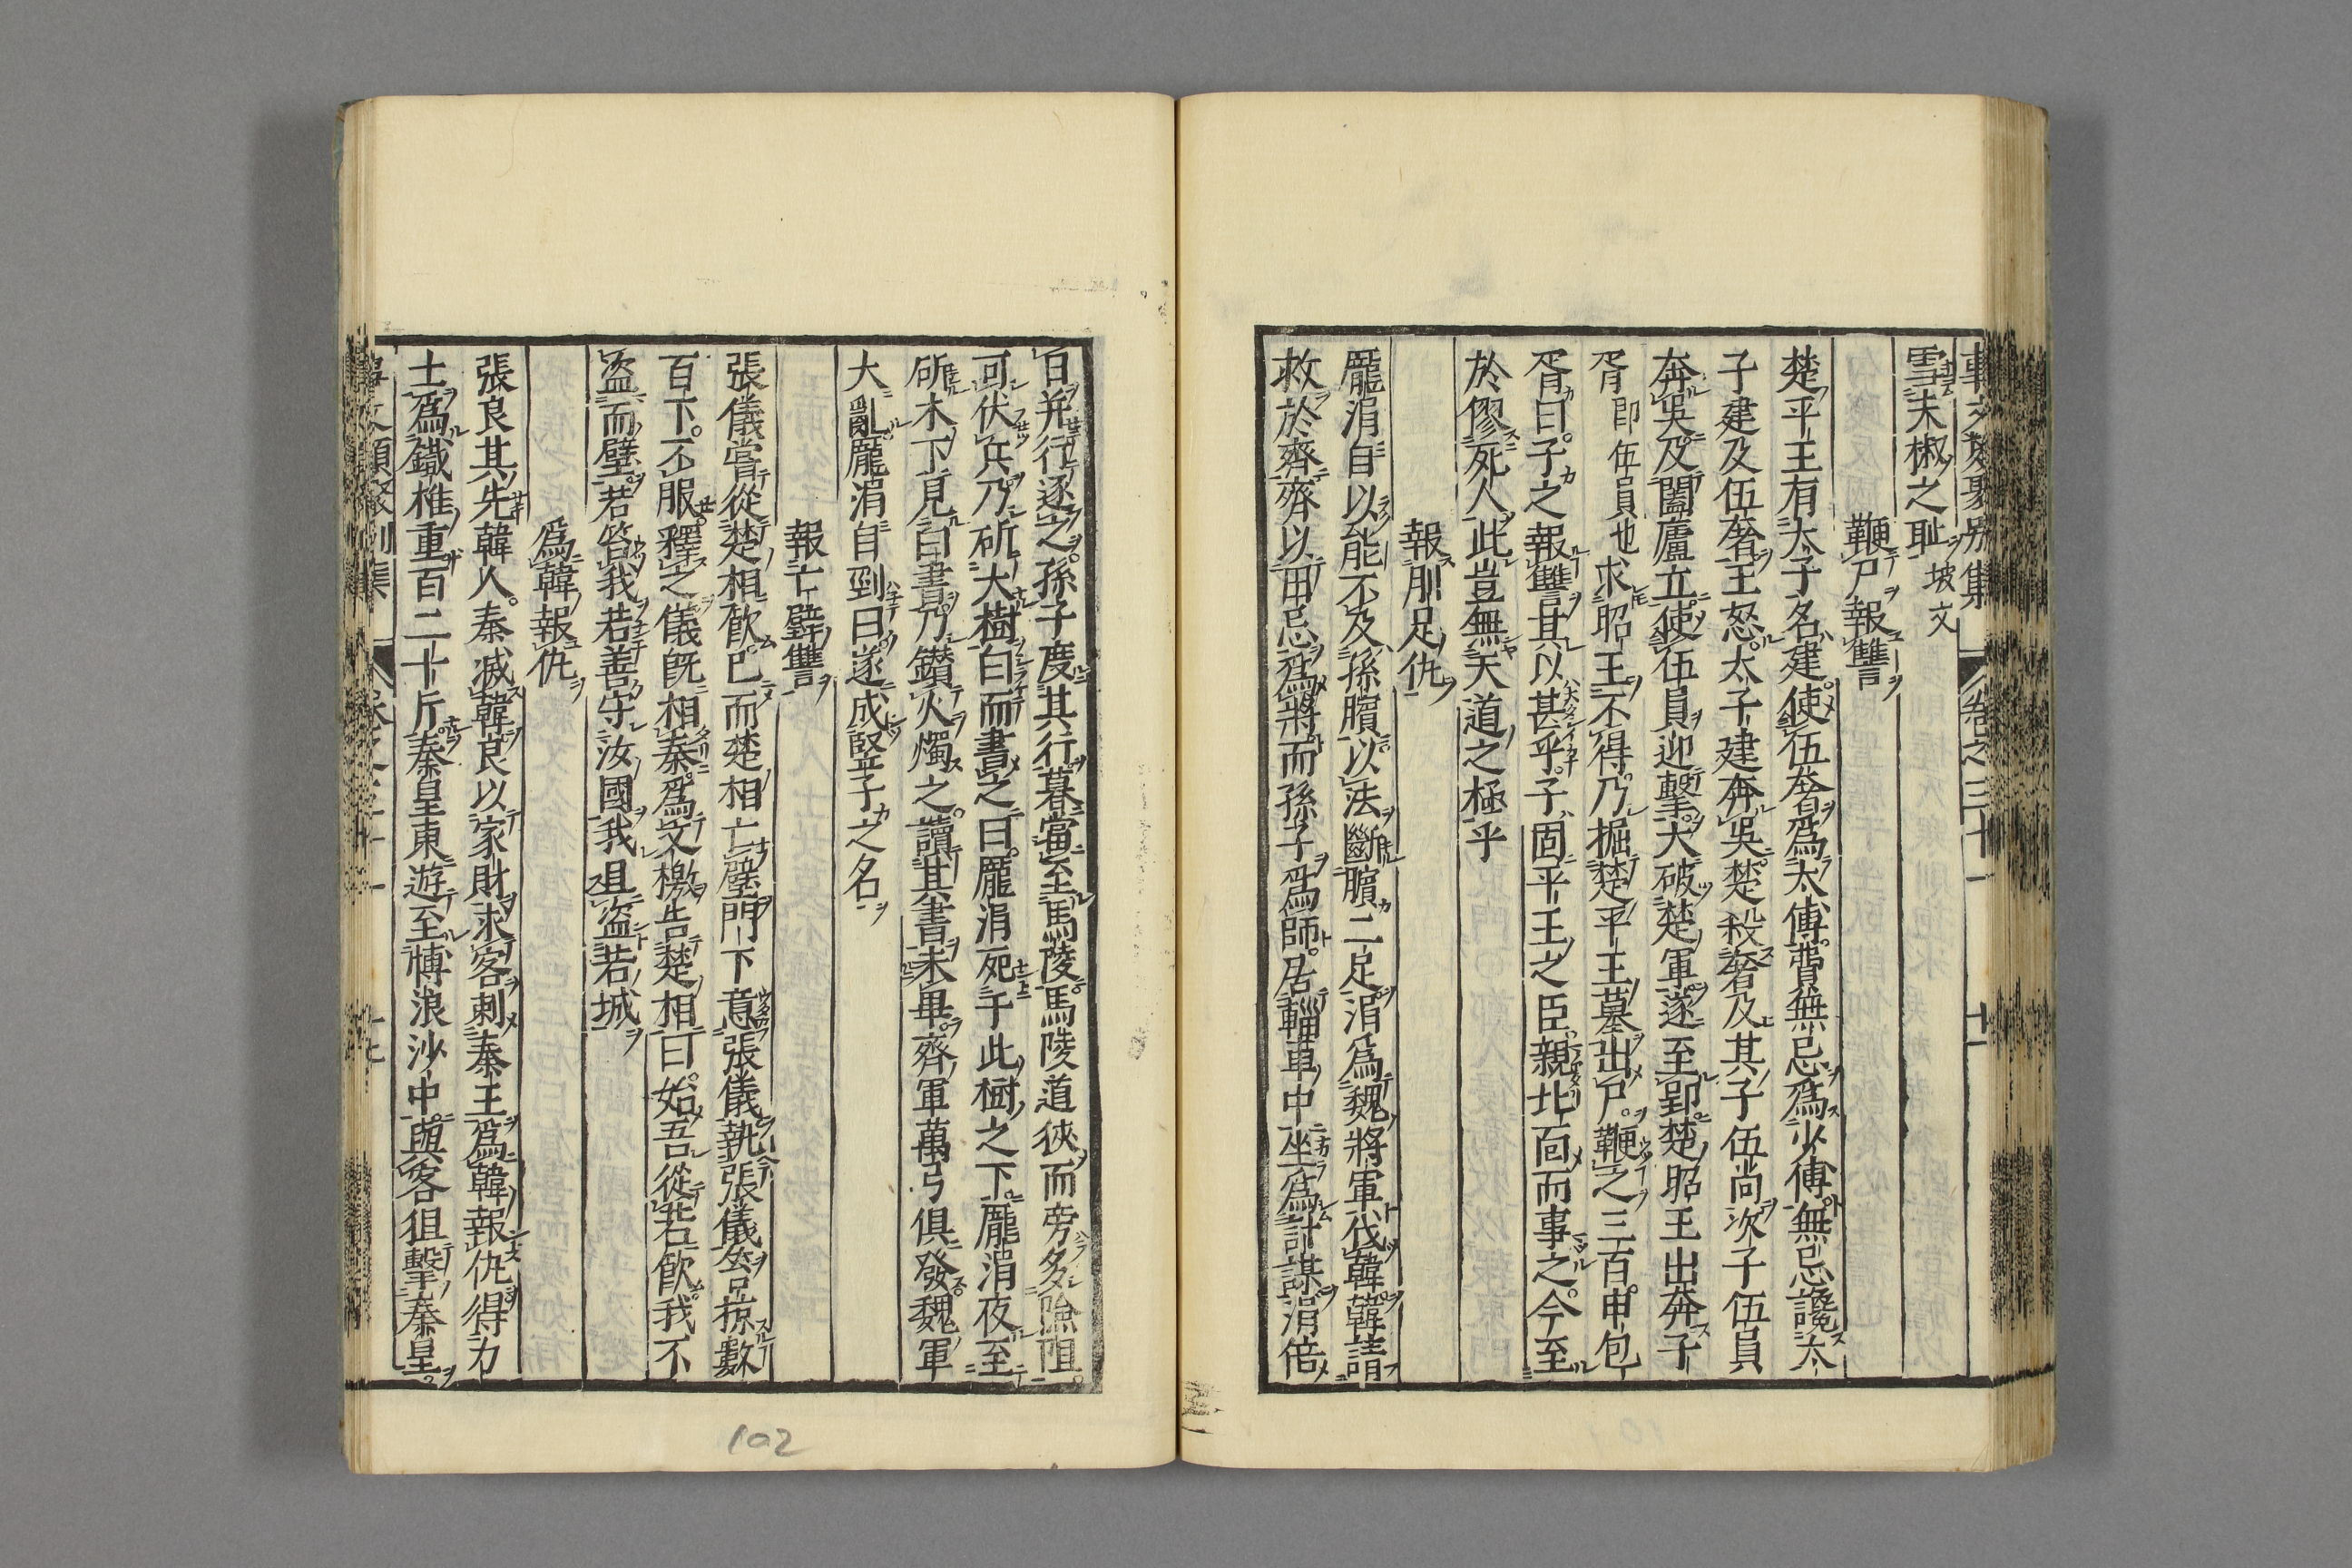 事文類聚別集 卷之三十一 十二
雪夫椒之耻 坡文
鞭尸報讐
楚平王有太子名建使伍奢爲太傅費無忌爲少傅無忌讒太
子建及伍奢王怒太子建奔吳楚殺奢及其子伍尚次子伍員
奔吳及闔廬立使伍員迎擊大破楚軍遂至郢楚昭王出奔子
胥即伍員也求昭王不得乃掘楚平王墓出尸鞭之三百申包
胥曰子之報讐其以甚乎子固平王之臣親北面而事之今至
於僇死人此豈無天道之極乎
報刖足仇
龐涓自以能不及孫臏以法斷臏二足涓爲魏將軍伐韓韓請
救於齊齊以田忌爲將而孫子爲師居輜車中坐爲計謀涓倍
日并行逐之孫子度其行暮當至馬陵馬陵道狹而旁多險阻
可伏兵乃斫大樹白而書之曰龐涓死于此樹之下龐涓夜至
斫木下見白書乃鑽火燭之讀其書未畢齊軍萬弓俱發魏軍
大亂龐涓自剄曰遂成竪子之名
報亡璧讐
張儀嘗從楚相飮已而楚相亡璧門下意張儀執張儀笞掠數
百下不服釋之儀旣相秦爲文檄告楚相曰始吾從若飮我不
盜而璧若笞我若善守汝國我且盜若城
爲韓報仇
張良其先韓人秦滅韓良以家財求客刺秦王爲韓報仇得力
士爲鐵椎重百二十斤秦皇東遊至博浪沙中與客狙擊秦皇
102